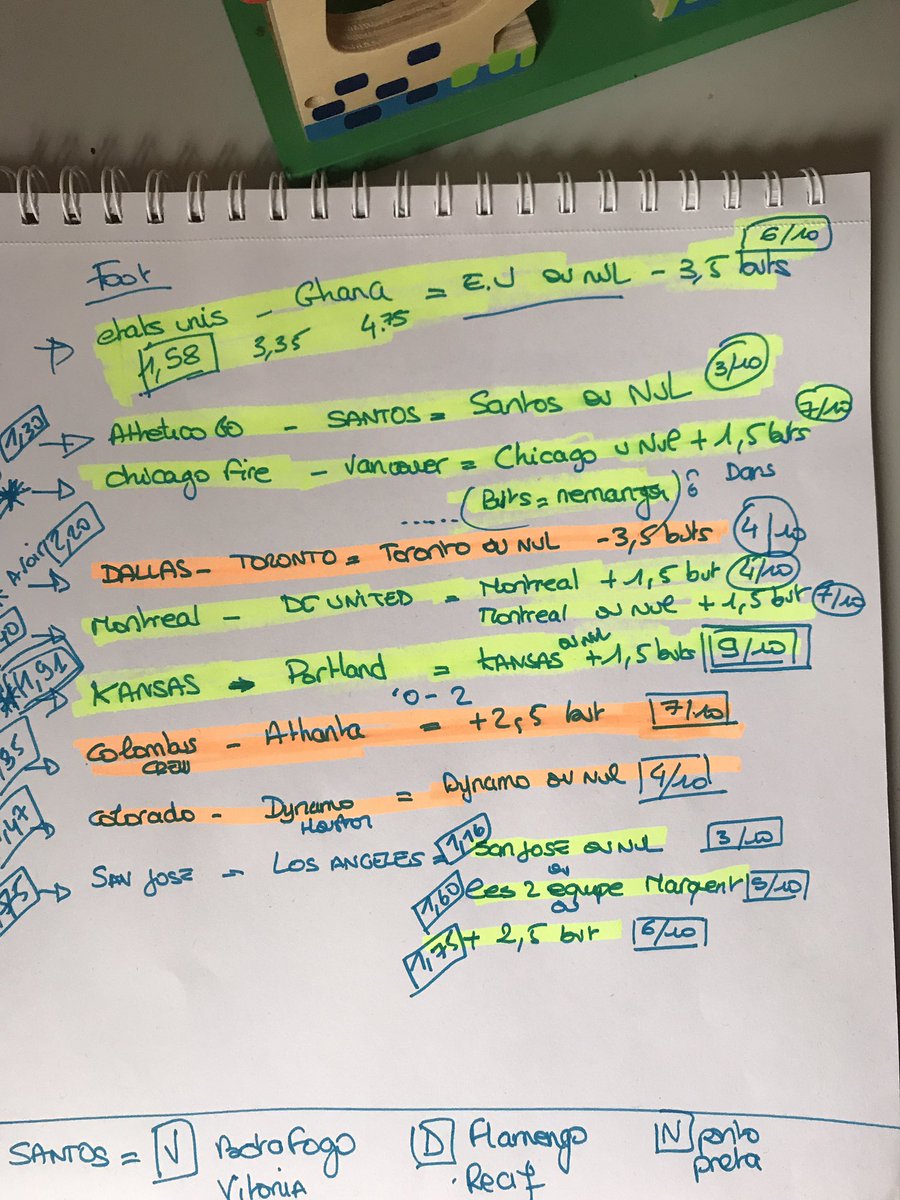 Foot
6/10
etats unis - Ghana = E.U ou nul - 3,5 buts
1,58 3,35 4.75
1,30 Athletico GO - SANTOS = Santos ou NUL 3/10
chicago fire - Vancouver = Chicago u Nul + 1,5 buts 7/10
(Buts = nemanga) Dans
2,20
DALLAS - TORONTO = Toronto ou NUL - 3,5 buts 4/10
Montreal - DC UNITED = Montreal + 1,5 but 4/10
Montreal ou nul + 1,5 but 7/10
1,91 KANSAS Portland = KANSAS ou nul + 1,5 buts 9/10
0-2
Colombus - Athanta = + 2,5 but 7/10
CREW
Colorado - Dynamo = Dynamo ou Nul 4/10
Houston
SAN JOSE - LOS ANGELES = 1,16 San JOSE ou NUL 3/10
ou
1,60 les 2 equipe Marquent 5/10
ou
1,75 + 2,5 but 6/10
SANTOS = V Botrafogo D Flamengo N ponto
Vitoria Recif preta